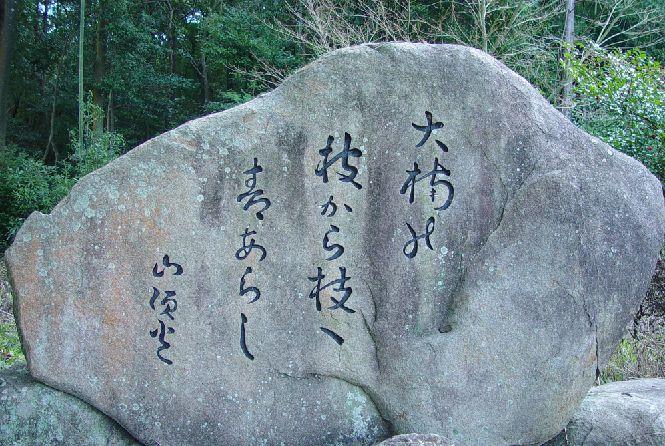 大楠の
枝から枝へ
青あらし
山頭火